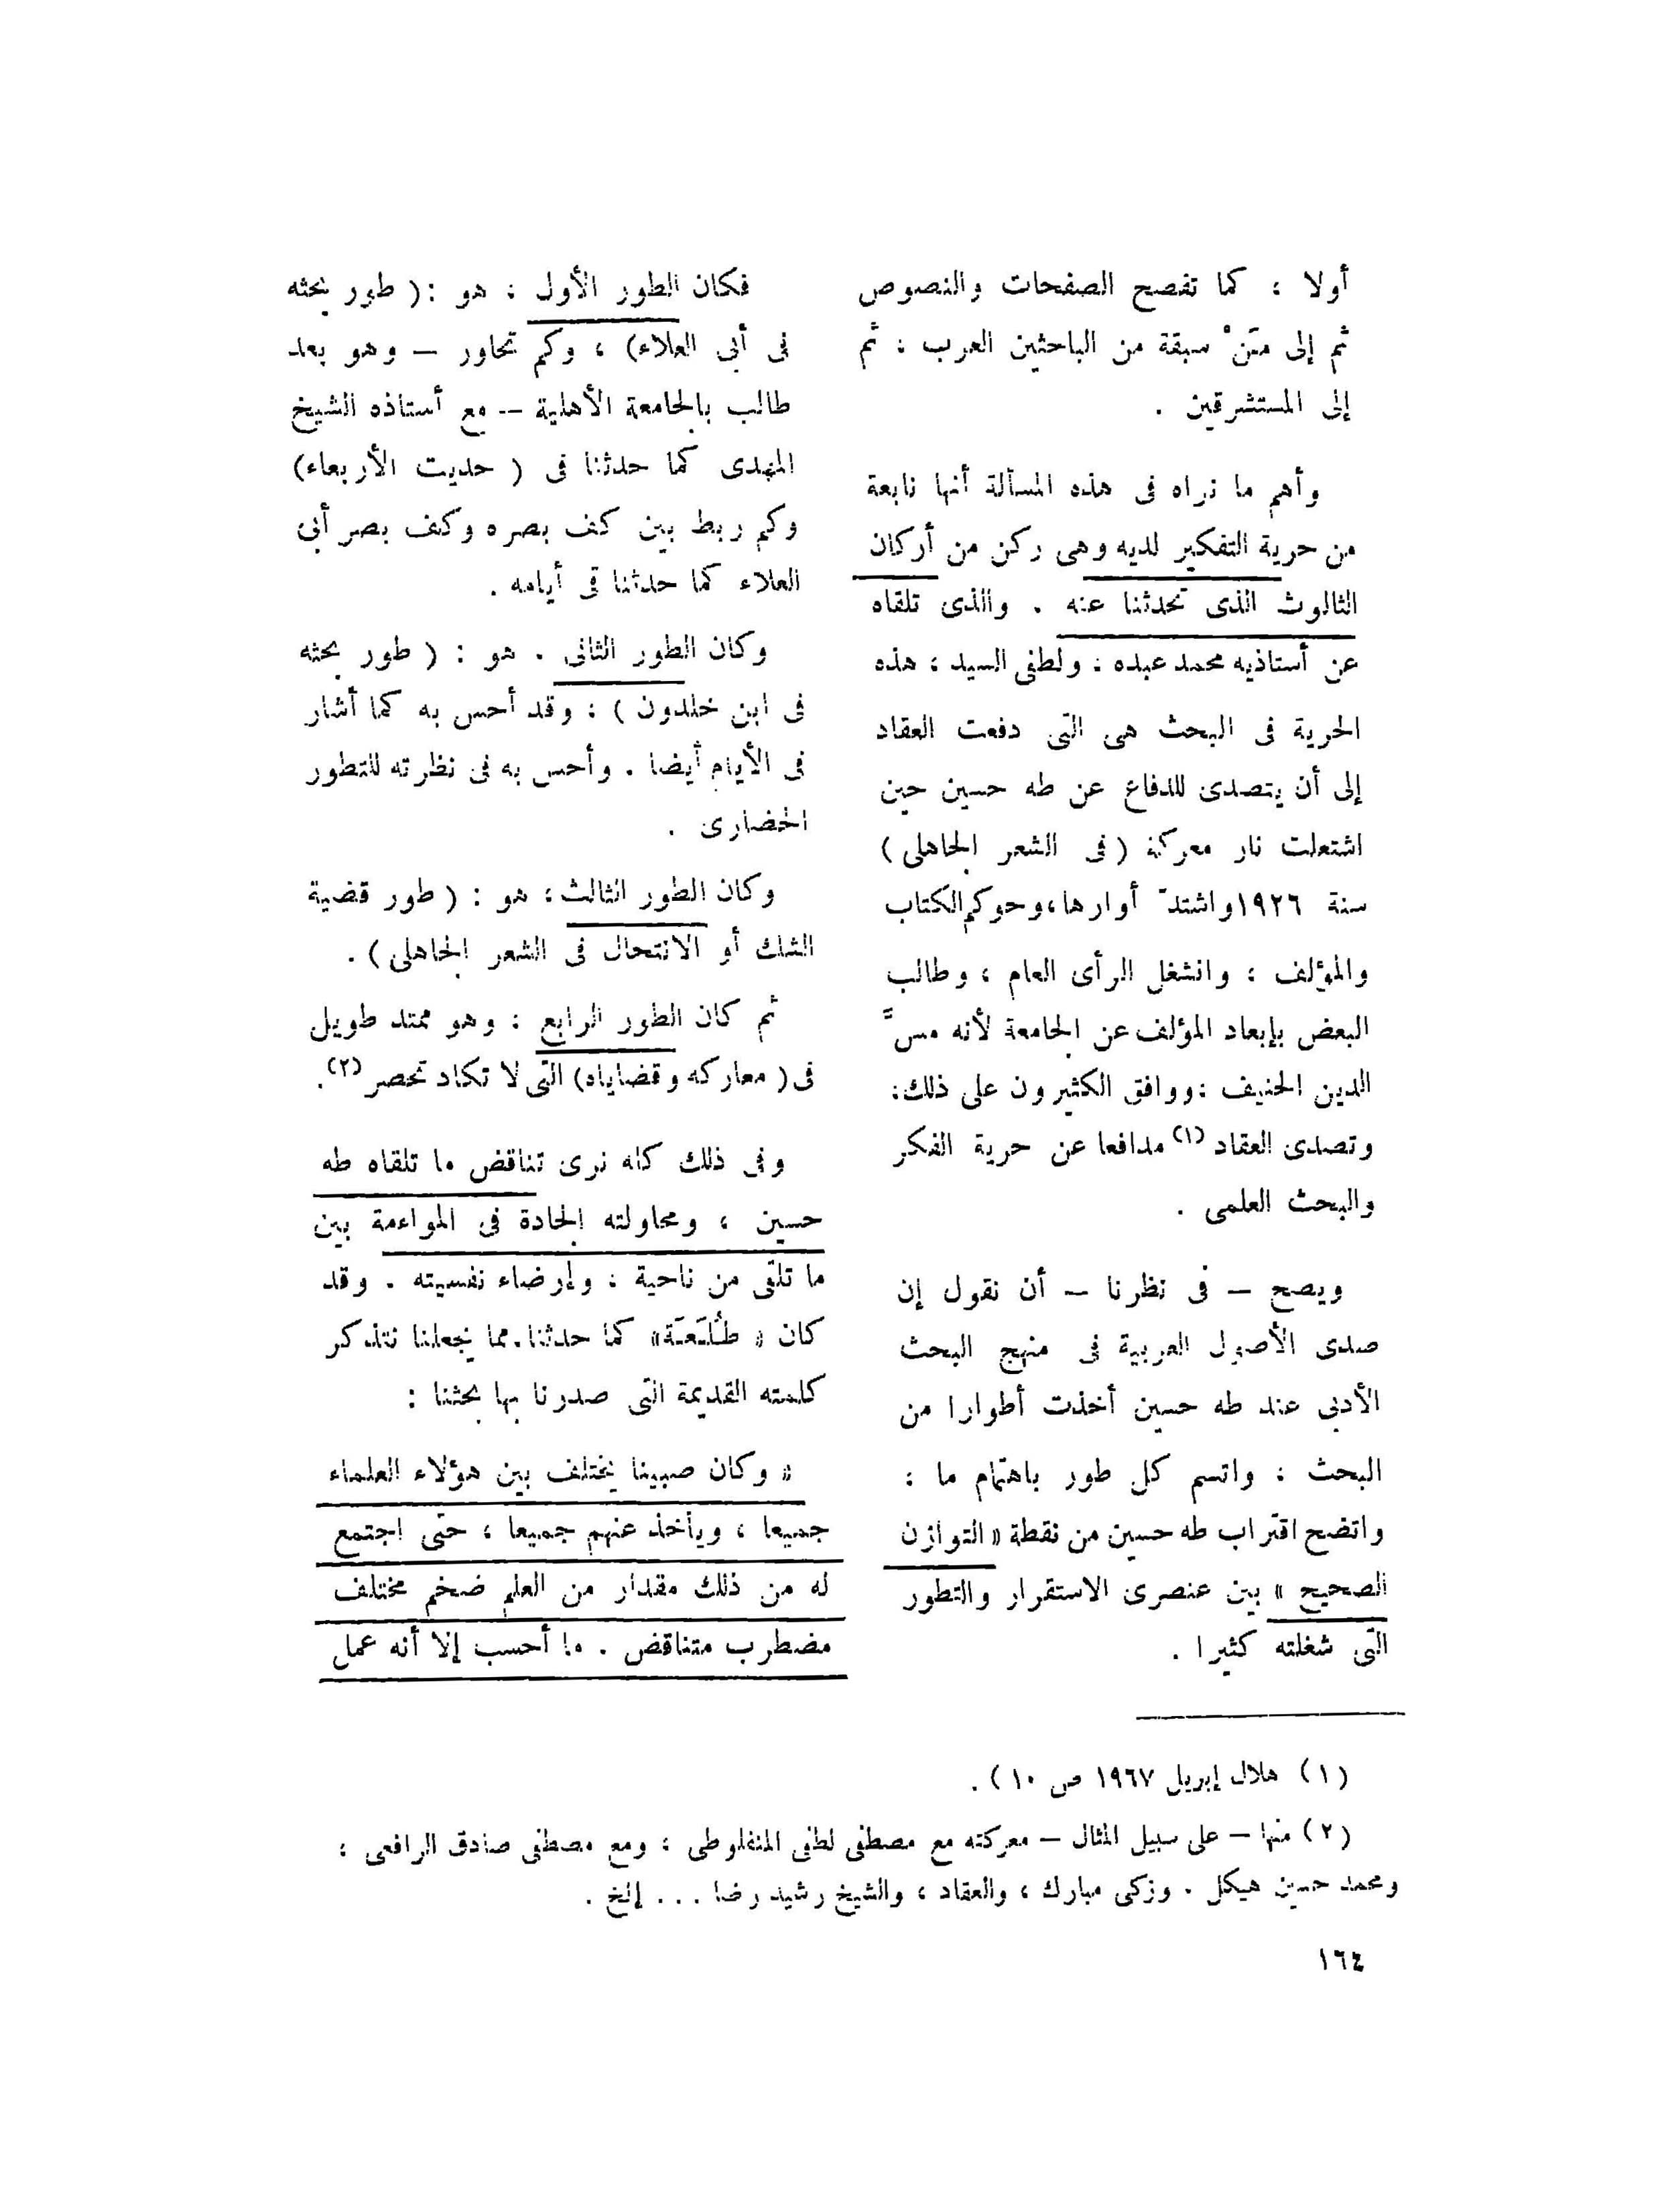 أولا ، كما تفصح الصفحات والنصوص
ثم إلى مَنْ سبقة من الباحثين العرب ، ثم
إلى المستشرقين .
وأهم ما نراه فى هذه المسألة أنها نابعة
من حرية التفكير لديه وهى ركن من أركان
الثالوث الذى تحدثنا عنه . والذى تلقاه
عن أستاذيه محمد عبده ، ولطفى السيد ، هذه
الحرية فى البحث هى التى دفعت العقاد
إلى أن يتصدى للدفاع عن طه حسين حين
اشتعلت نار معركة (فى الشعر الجاهلى)
سنة ١٩٢٦واشتدّ أوارها،وحوكم الكتاب
والمؤلف ، وانشغل الرأى العام ، وطالب
البعض بإبعاد المؤلف عن الجامعة لأنه مسَّ
الدين الحنيف ،ووافق الكثيرون على ذلك،
وتصدى العقاد (١) مدافعا عن حرية الفكر
والبحث العلمى .
ويصح – فى نظرنا – أن نقول إن
صدى الأصول العربية فى منهج البحث
الأدبى عند طه حسين أخذت أطوارا من
البحث ، واتسم كل طور باهتمام ما ،
واتضح اقتراب طه حسين من نقطة « التوازن
الصحيح » بين عنصرى الاستقرار والتطور
التى شغلته كثيرا .
فكان الطور الأول ، هو :( طور بحثه
فى أبى العلاء) ، وكم تحاور – وهو بعد
طالب بالجامعة الأهلية -- مع أستاذه الشيخ
المهدى كما حدثنا فى ( حديت الأربعاء)
وكم ربط بين كف بصره وكف بصر أبى
العلاء كما حدثنا قى أيامه .
وكان الطور الثانى . هو : ( طور بحثه
فى ابن خلدون ) ، وقد أحس به كما أشار
فى الأيام أيضا . وأحس به فى نظرته للتطور
الحضارى .
وكان الطور الثالث، هو : ( طور قضية
الشك أو الانتحال فى الشعر الجاهلى) .
ثم كان الطور الرابع : وهو ممتد طويل
فى( معاركه وقضاياه) التى لا تكاد تحصر (٢).
وفى ذلك كله نرى تناقض ما تلقاه طه
حسين ، ومحاولته الجادة فى المواءمة بين
ما تلقى من ناحية ، وإرضاء نفسيته . وقد
كان « طُلَعَة» كما حدثنا.مما يجعلنا نتذكر
كلمته القديمة التى صدرنا بها بحثنا :
« وكان صبينا يختلف بين هؤلاء العلماء
جميعا ، ويأخذ عنهم جميعا ، حتى اجتمع
له من ذلك مقدار من العلم ضخم مختلف
مضطرب متناقض . ما أحسب إلا أنه عمل
(١) هلال إبريل ١٩٦٧ ص ١٠) .
(٢) منها – على سبيل المثال – معركته مع مصطفى لطفى المنفلوطى ، ومع مصطفى صادق الرافعى ،
ومحمد حسين هيكل . وزكى مبارك ، والعقاد ، والشيخ رشيد رضا ... إلخ .
١٦٤